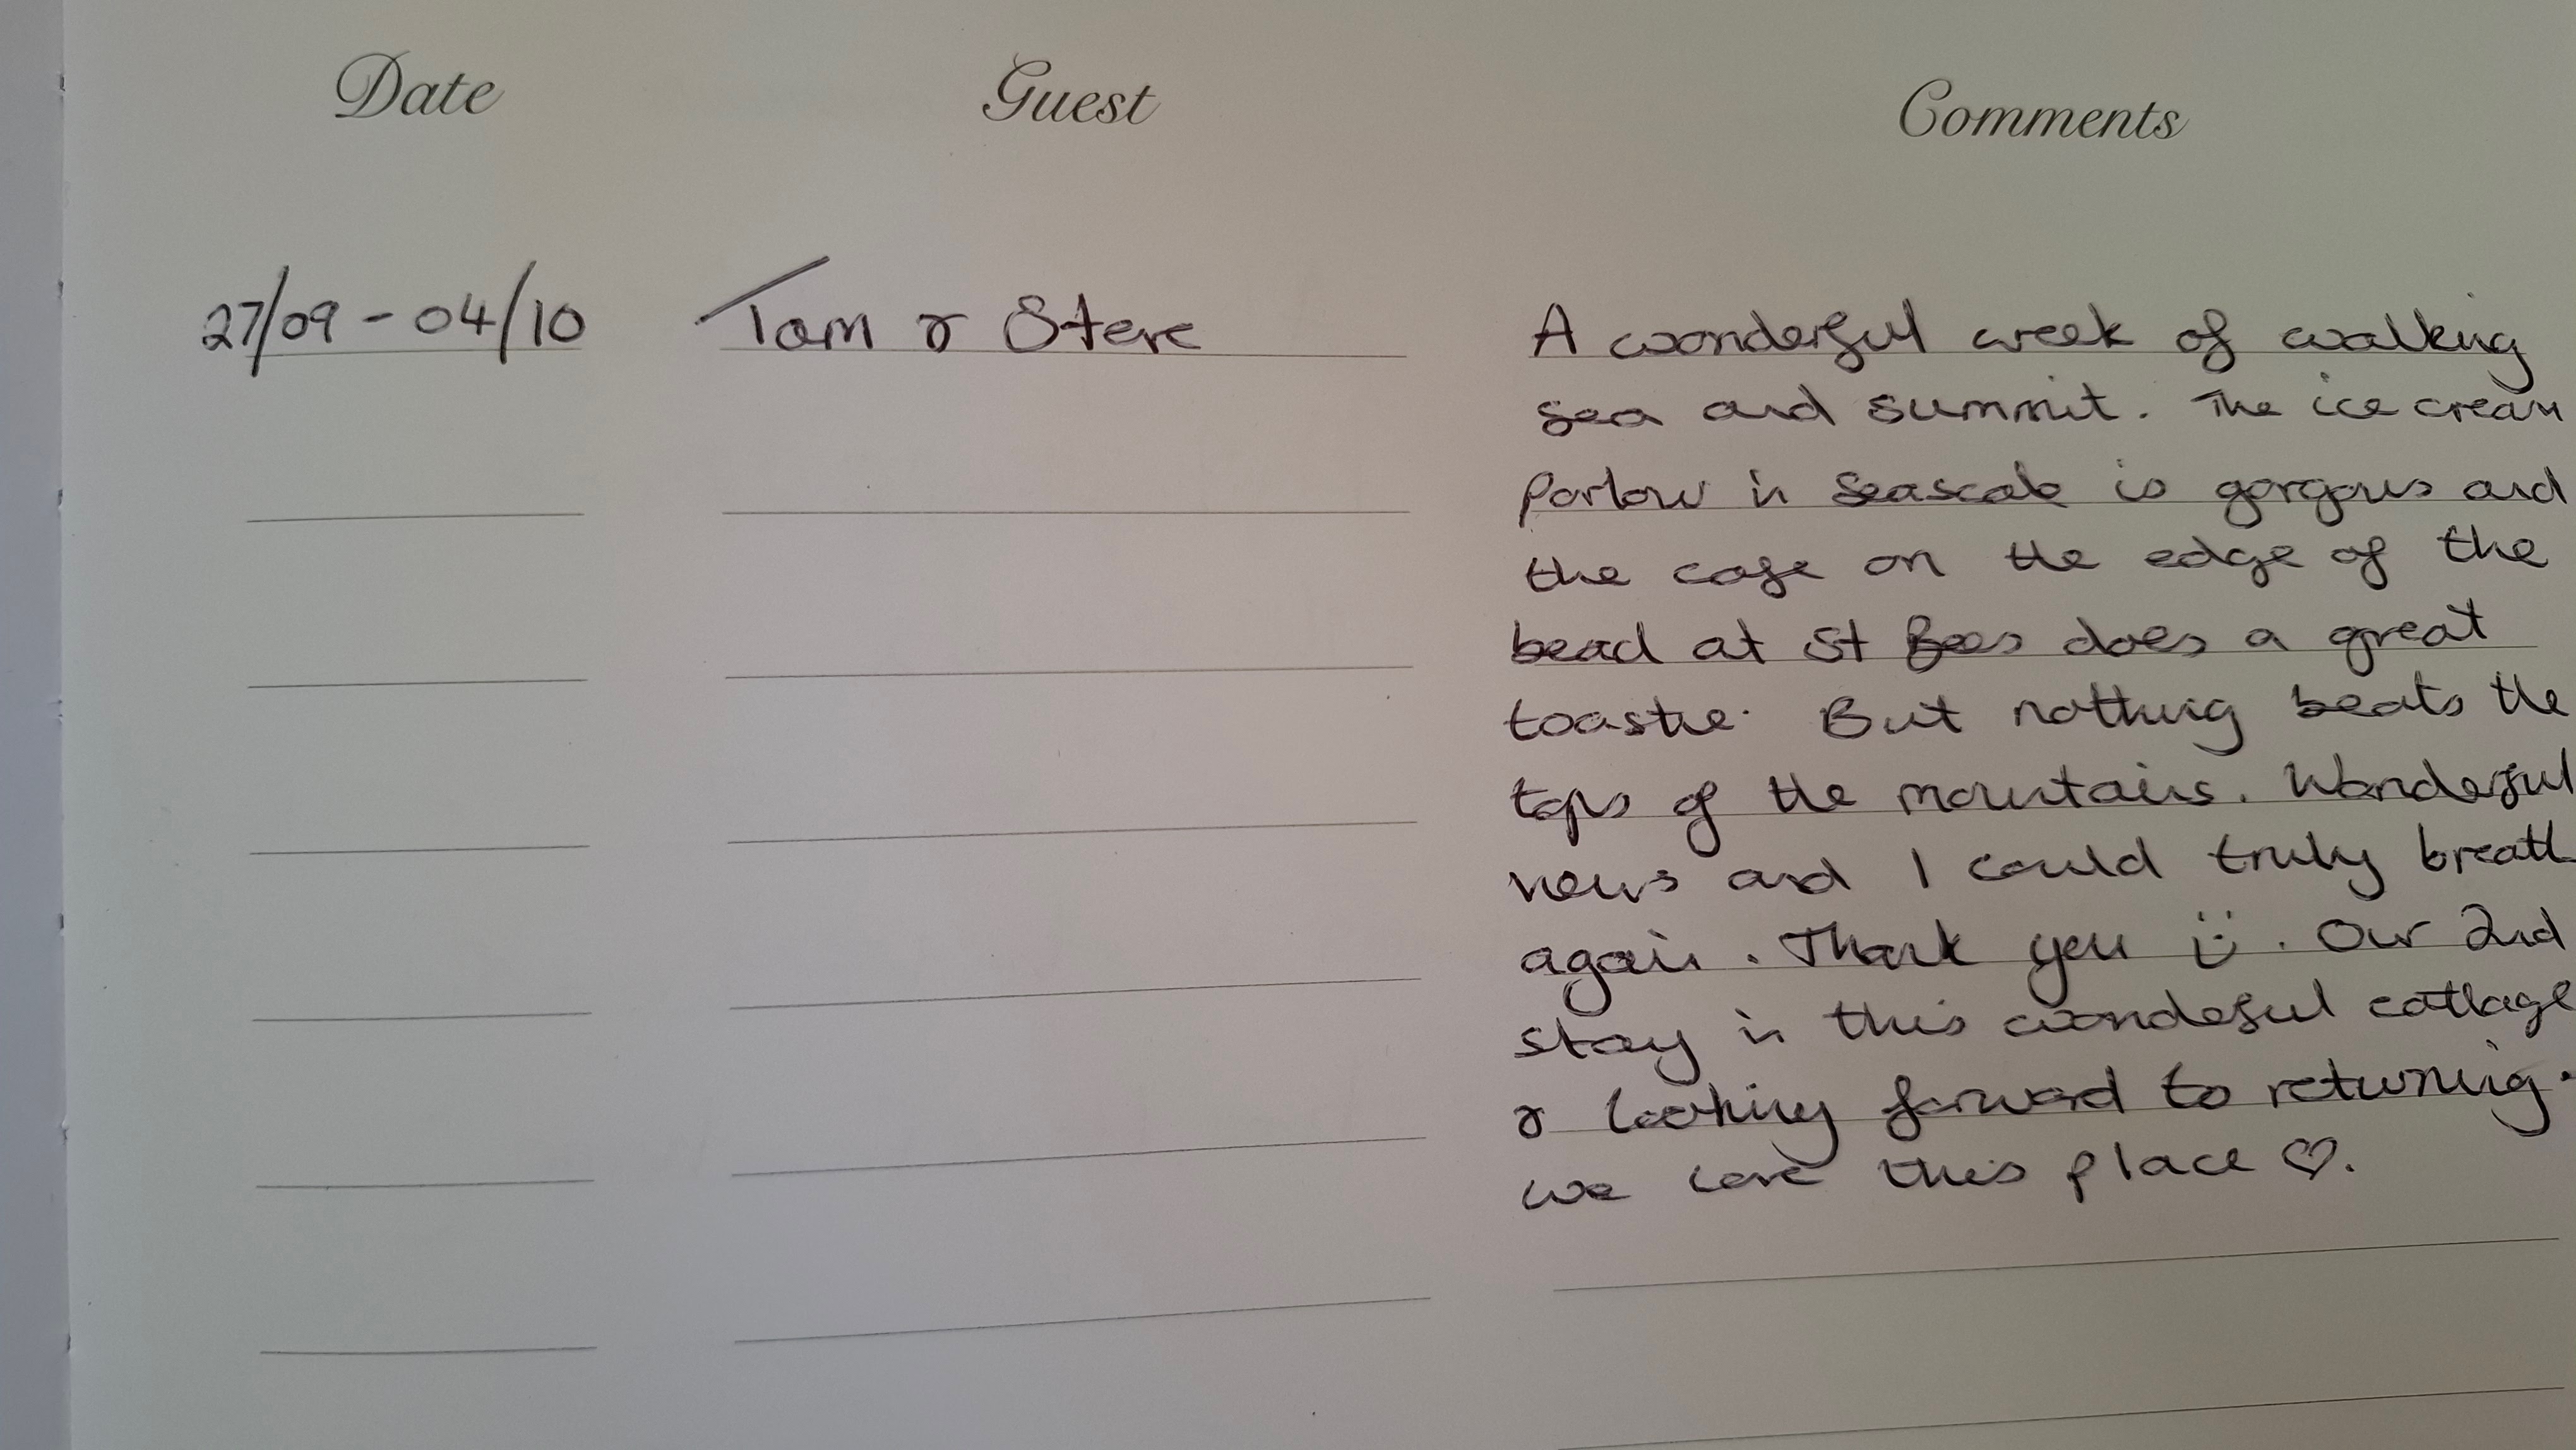 Date Guest Comments
27/09 - 04/10 Tom & Steve A wonderful week of walking
sea and summit. The ice cream
parlour in Seascale is gorgous and
the cafe on the edge of the
beach at St Bees does a great
toastie. But nothing beats the
tops of the mountains. Wonderful
views and I could truly breath
again. Thank you :). Our 2nd
stay in this wondeful cottage
& looking forward to returning.
we love this place ♡.